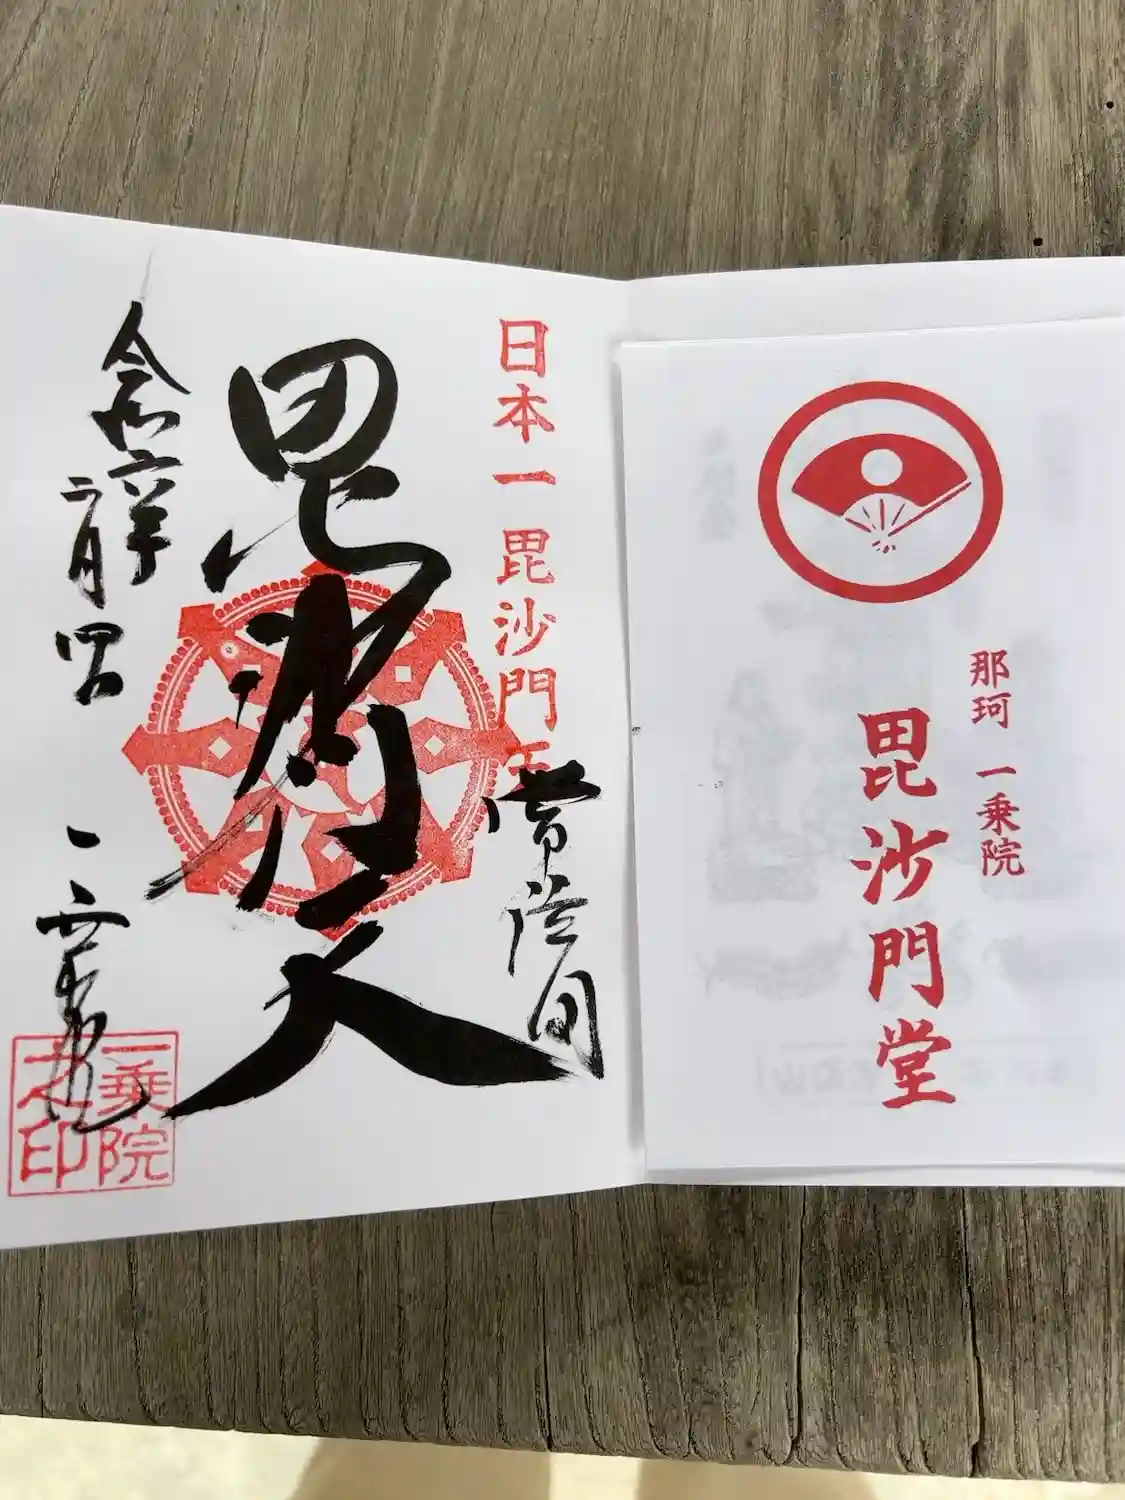 那珂 一乗院
毘沙門堂
日本一毘沙門天
常陸国
毘沙門天
令和六年
二月四日
一乗院
一乗院之印